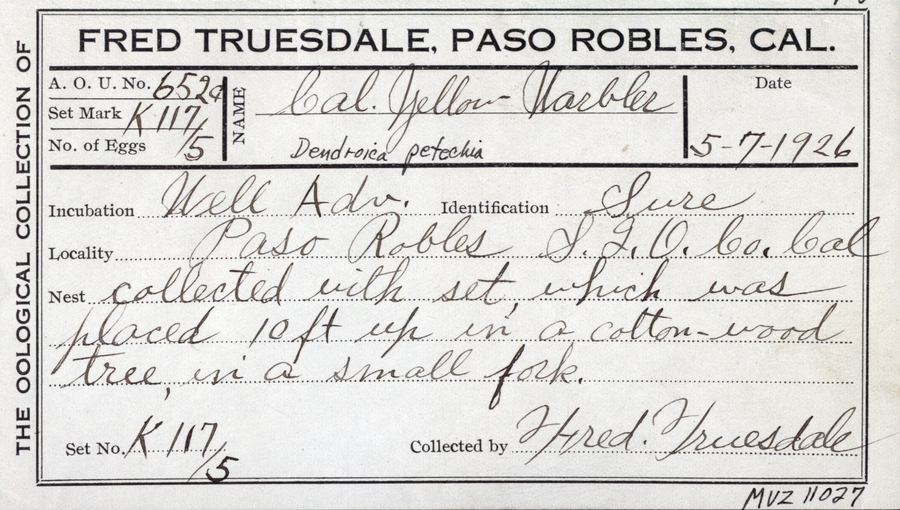 THE OOLOGICAL COLLECTION OF
FRED TRUESDALE, PASO ROBLES, CAL.
A. O. U. No. 652c
Set Mark K 117/5
No. of Eggs
NAME Cal. Yellow-Warbler
Dendroica petechia
Date
5-7-1926
Incubation Well Adv. Identification Sure
Locality Paso Robles S.L.O. Co. Cal
Nest collected with set, which was
placed 10 ft up in a cotton-wood
tree, in a small fork.
Set No. K 117/5 Collected by Fred. Truesdale
MVZ 11027